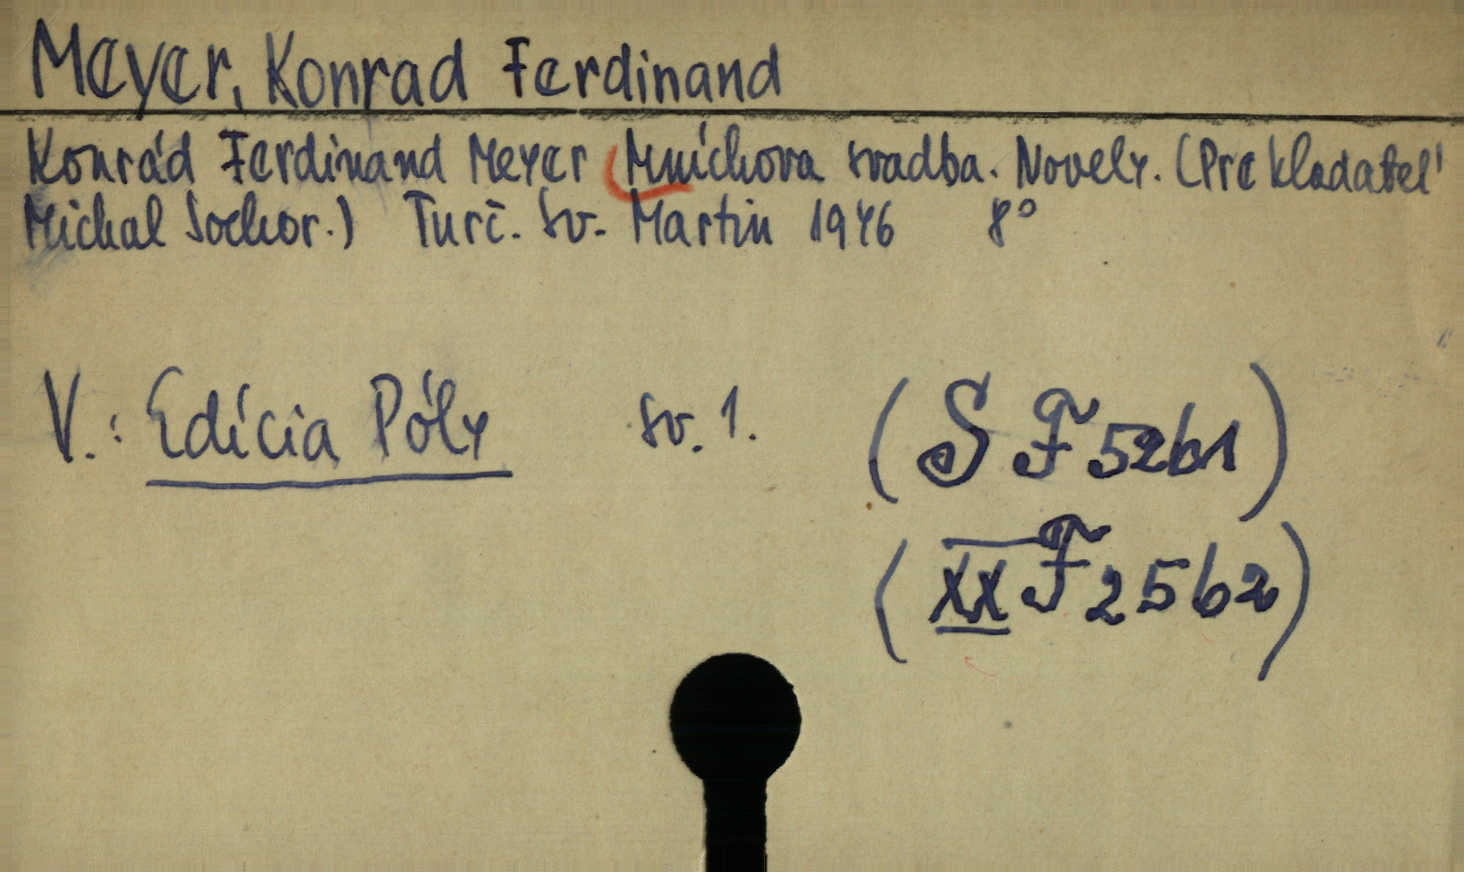 Meyer, Konrad Ferdinand
Konrád Ferdinand Meyer Mníchova svadba. Novely. (Prekladateľ
Michal Sochor.) Turč. Sv. Martin 1946 8°
V.: Edícia Póly sv. 1. (S F 52b1)
(XX F 25b2)